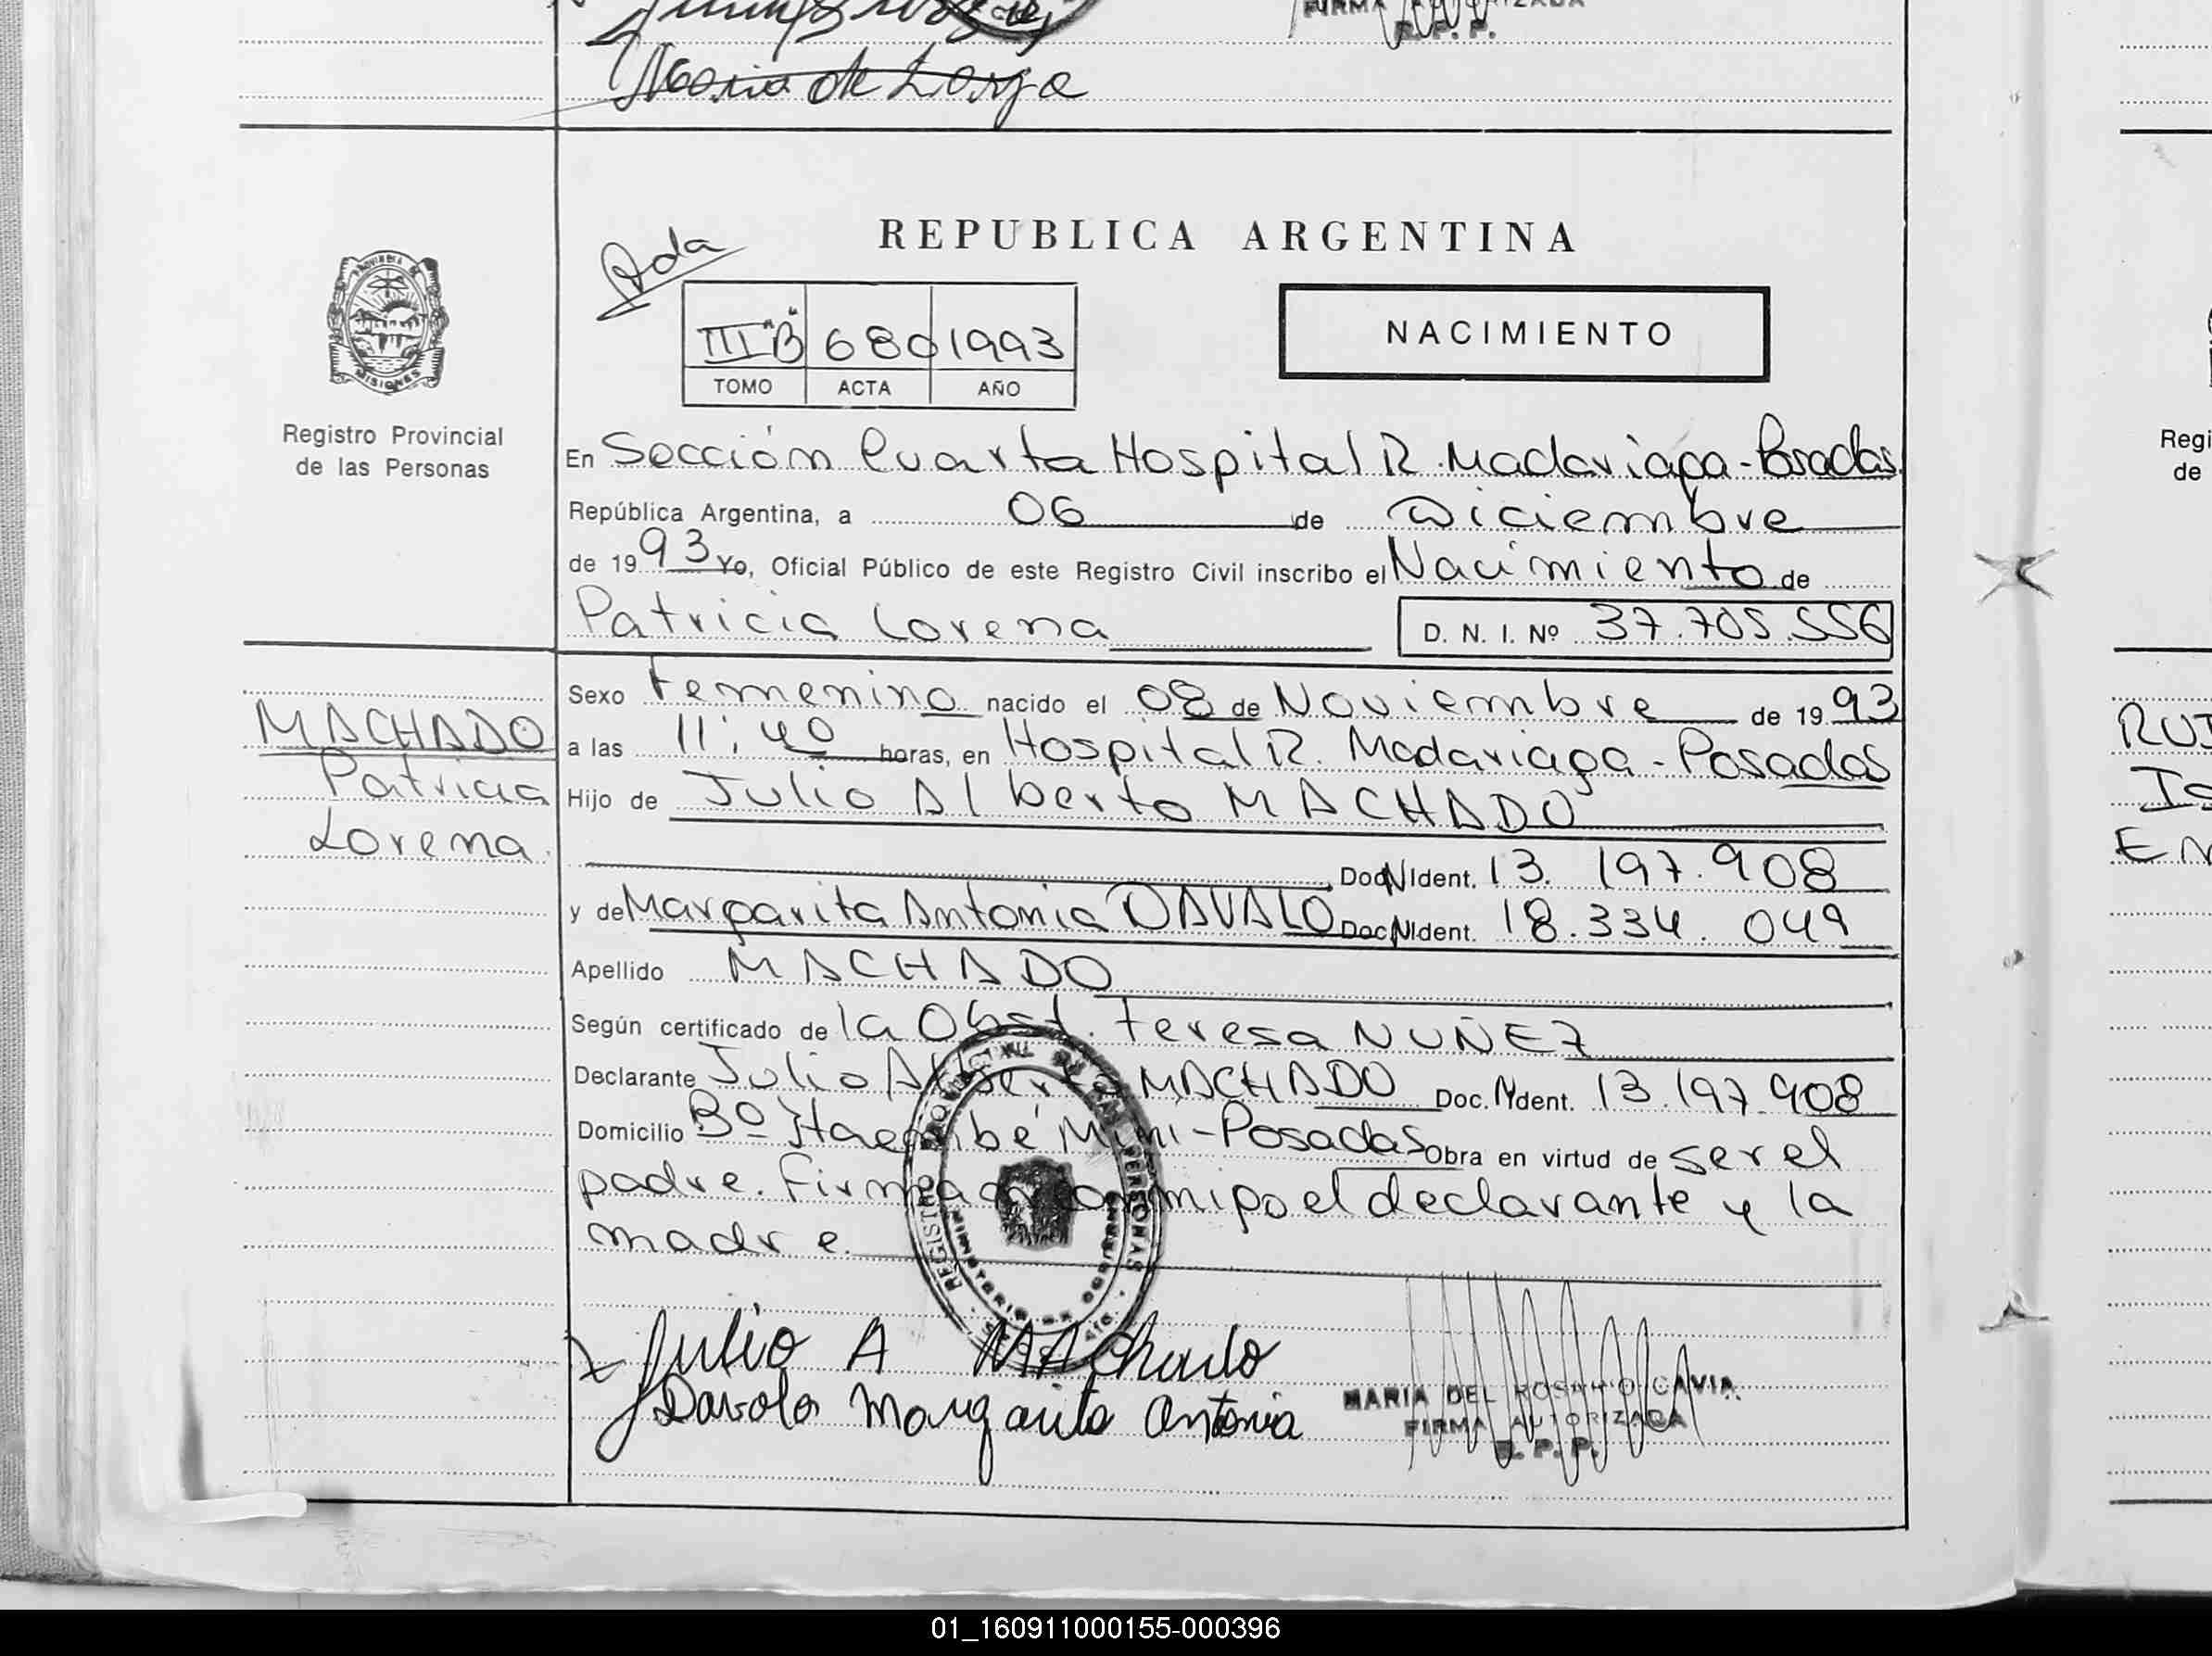 FIRMA AUTORIZADA
R. P. P.
Maria de Lorga
REPUBLICA ARGENTINA
Rda
III "B" 680 1993
TOMO ACTA AÑO
NACIMIENTO
PROVINCIA DE
MISIONES
Registro Provincial
de las Personas
En Sección Cuarta Hospital R. Madariaga - Posadas
República Argentina, a 06 de Diciembre
de 1993 Yo, Oficial Público de este Registro Civil inscribo el Nacimiento de
Patricia Lorena D. N. I. Nº 37.705.556
MACHADO
Patricia
Lorena
Sexo Femenino nacido el 08 de Noviembre de 1993
a las 11:40 horas, en Hospital R. Madariaga - Posadas
Hijo de Julio Alberto MACHADO
Doc. N Ident. 13.197.908
y de Margarita Antonia DAVALO Doc. N Ident. 18.334.049
Apellido MACHADO
Según certificado de la Obst. Teresa NUÑEZ
Declarante Julio Alberto MACHADO Doc. N Ident. 13.197.908
Domicilio Bº Itaembé Mini - Posadas Obra en virtud de ser el
padre. Firman conmigo el declarante y la
madre.
Julio A Machado
Davalo Margarita Antonia
MARIA DEL ROSARIO CAVIA
FIRMA AUTORIZADA
R. P. P.
Regi
de
RU
Is
E
01_160911000155-000396